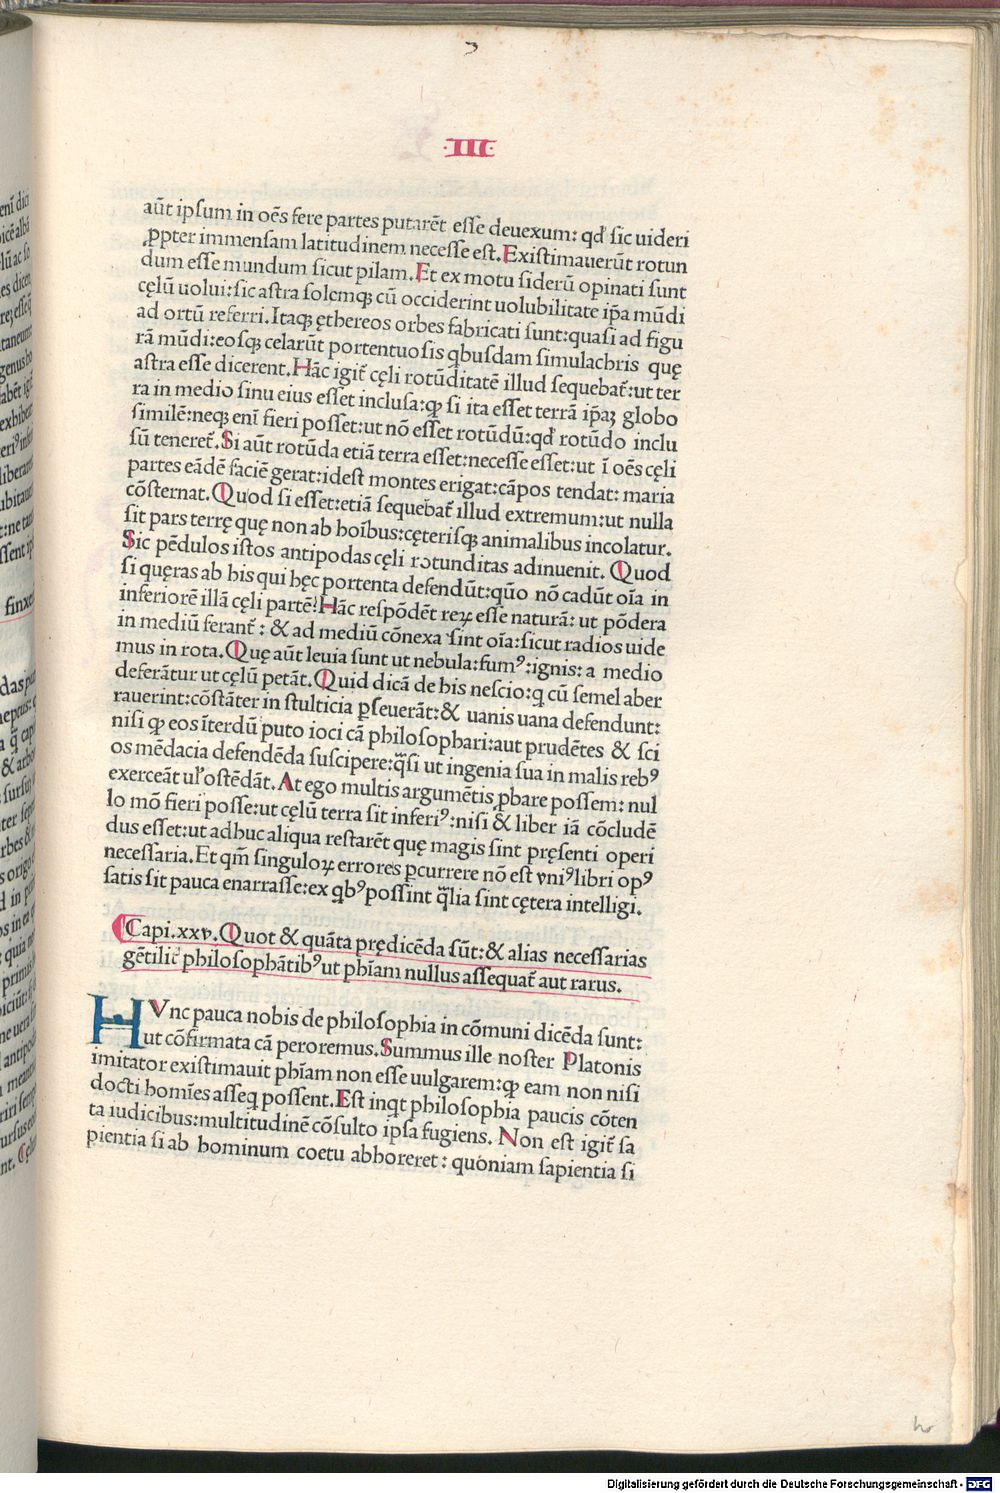 ·III·
aūt ipſum in oēs fere partes putarēt eſſe deuexum: qđ ſic uideri
ꝓpter immenſam latitudinem neceſſe eſt. Exiſtimauerūt rotun
dum eſſe mundum ſicut pilam. Et ex motu ſiderū opinati ſunt
cęlū uolui: ſic aſtra ſolemqꝫ cū occiderint uolubilitate ip̄a mūdi
ad ortū referri. Itaqꝫ ęthereos orbes fabricati ſunt: quaſi ad figu
rā mūdi: eoſqꝫ celarūt portentuoſis qbuſdam ſimulachris quę
aſtra eſſe dicerent. Hāc igit̄ cęli rotūditatē illud ſequebat̄: ut ter
ra in medio ſinu eius eſſet incluſa: ꝙ ſi ita eſſet terrā ip̄aꝫ globo
ſimilē: neqꝫ eni̅ fieri poſſet: ut nō eſſet rotūdū: qđ rotūdo inclu
ſū teneret̄. Si aūt rotūda etiā terra eſſet: neceſſe eſſet: ut ī oēs cęli
partes eādē faciē gerat: ideſt montes erigat: cāpos tendat: maria
cōſternat. Quod ſi eſſet: etiā ſequebat̄ illud extremum: ut nulla
ſit pars terrę quę non ab hoībus: cęteriſqꝫ animalibus incolatur.
Sic pēdulos iſtos antipodas cęli rotunditas adinuenit. Quod
ſi quęras ab his qui hęc portenta defendūt: quō nō cadūt oīa in
inferiorē illā cęli partē? Hāc reſpōdēt reꝝ eſſe naturā: ut pōdera
in mediū ferant̄: & ad mediū cōnexa ſint oīa: ſicut radios uide
mus in rota. Quę aūt leuia ſunt ut nebula: fumꝰ: ignis: a medio
deferātur ut cęlū petāt. Quid dicā de his neſcio: q cū ſemel aber
rauerint: cōſtāter in ſtulticia ꝑſeuerāt: & uanis uana defendunt:
niſi ꝙ eos īterdū puto ioci cā philoſophari: aut prudētes & ſci
os mēdacia defendēda ſuſcipere: q̄ſi ut ingenia ſua in malis rebꝰ
exerceāt ul̓ oſtēdāt. At ego multis argumētis ꝓbare poſſem: nul
lo mō fieri poſſe: ut cęlū terra ſit inferiꝰ: niſi & liber iā cōcludē
dus eſſet: ut adhuc aliqua reſtarēt quę magis ſint pręſenti operi
neceſſaria. Et qm̄ ſinguloꝝ errores ꝑcurrere nō eſt vniꝰ libri opꝰ
ſatis ſit pauca enarraſſe: ex qbꝰ poſſint q̄lia ſint cętera intelligi.
Capi. xxv. Quot & quāta prędicēda ſūt: & alias neceſſarias
gētiliū philoſophātibꝰ ut phīam nullus aſſequat̄ aut rarus.
HVnc pauca nobis de philoſophia in cōmuni dicēda ſunt:
ut cōfirmata cā peroremus. Summus ille noſter Platonis
imitator exiſtimauit phīam non eſſe uulgarem: ꝙ eam non niſi
docti homīes aſſeq poſſent. Eſt inqt philoſophia paucis cōten
ta iudicibus: multitudinē cōſulto ipſa fugiens. Non eſt igit̄ ſa
pientia ſi ab hominum coetu abhorreret: quoniam ſapientia ſi
Digitalisierung gefördert durch die Deutsche Forschungsgemeinschaft - DFG